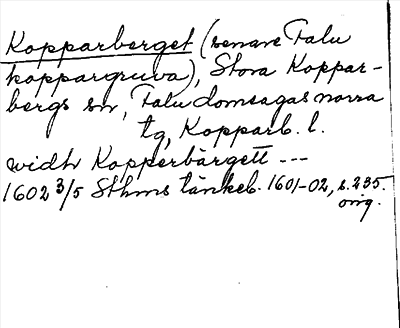 Kopparberget (senare Falu
koppargruva), Stora Koppar-
bergs sn, Falu domsagas norra
tg, Kopparb. l.
widh Kopperbärgett ---
1602 3/5 Sthms tänkeb. 1601-02, s. 235.
orig.